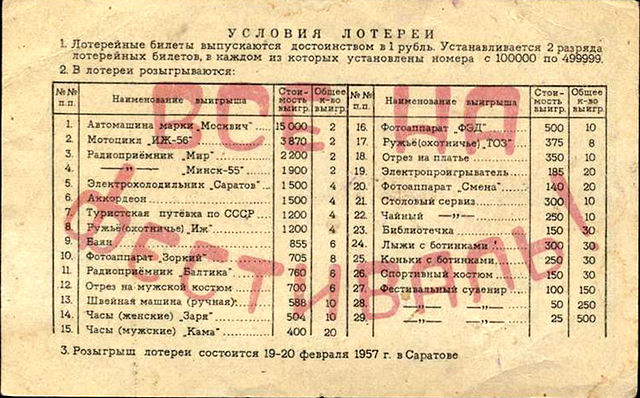 УСЛОВИЯ ЛОТЕРЕИ
1. Лотерейные билеты выпускаются достоинством в 1 рубль. Устанавливается 2 разряда
лотерейных билетов, в каждом из которых установлены номера с 100000 по 499999.
2. В лотереи розыгрываются:
№№ п.п. Наименование выигрыша Стои-мость выигр. Общее к-во выигр. №№ п.п. Наименование выигрыша Стои-мость выигр. Общее к-во выигр.
1. Автомашина марки „Москвич" 15 000 2 16. Фотоаппарат „ФЭД" 500 10
2. Мотоцикл „ИЖ-56" 3 870 2 17. Ружьё(охотничье) „ТОЗ" 375 8
3. Радиоприёмник „Мир" 2 200 2 18. Отрез на платье 350 10
4. —„— „Минск-55" 1 900 2 19. Электропроигрыватель 185 20
5. Электрохолодильник „Саратов" 1 500 4 20. Фотоаппарат „Смена" 140 20
6. Аккордеон 1 500 4 21. Столовый сервиз 300 10
7. Туристская путёвка по СССР 1 200 4 22. Чайный —„— 250 10
8. Ружьё(охотничье) „Иж" 1 200 4 23. Библиотечка 150 30
9. Баян 855 6 24. Лыжи с ботинками 300 30
10. Фотоаппарат „Зоркий" 705 8 25. Коньки с ботинками 250 30
11. Радиоприёмник „Балтика" 760 6 26. Спортивный костюм 150 30
12. Отрез на мужской костюм 700 6 27. Фестивальный сувенир 100 150
13. Швейная машина (ручная) 588 10 28. —„— —„— 50 250
14. Часы (женские) „Заря" 504 10 29 —„— —„— 25 500
15. Часы (мужские) „Кама" 400 20
3. Розыгрыш лотереи состоится 19-20 февраля 1957 г. в Саратове
ВСЕ НА
ФЕСТИВАЛЬ!